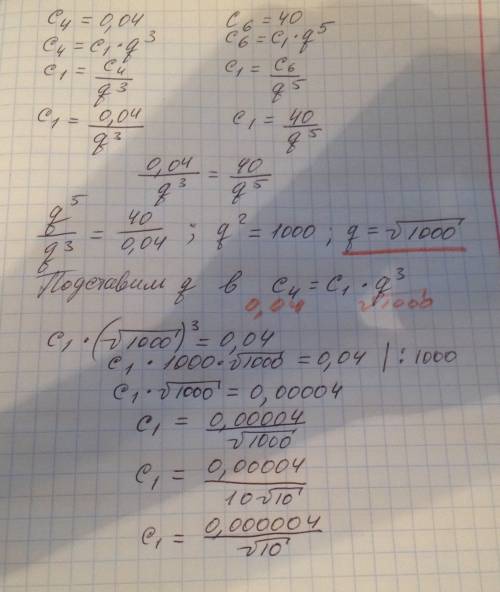 c₄ = 0,04 c₆ = 40
c₄ = c₁ · q³ c₆ = c₁ · q⁵
c₁ = c₄/q³ c₁ = c₆/q⁵
c₁ = 0,04/q³ c₁ = 40/q⁵
0,04/q³ = 40/q⁵
q⁵/q³ = 40/0,04 ; q² = 1000 ; q = √1000
Подставим q в c₄ = c₁ · q³
0,04 √1000
c₁ · (√1000)³ = 0,04
c₁ · 1000 · √1000 = 0,04 | : 1000
c₁ · √1000 = 0,00004
c₁ = 0,00004/√1000
c₁ = 0,00004/10√10
c₁ = 0,000004/√10